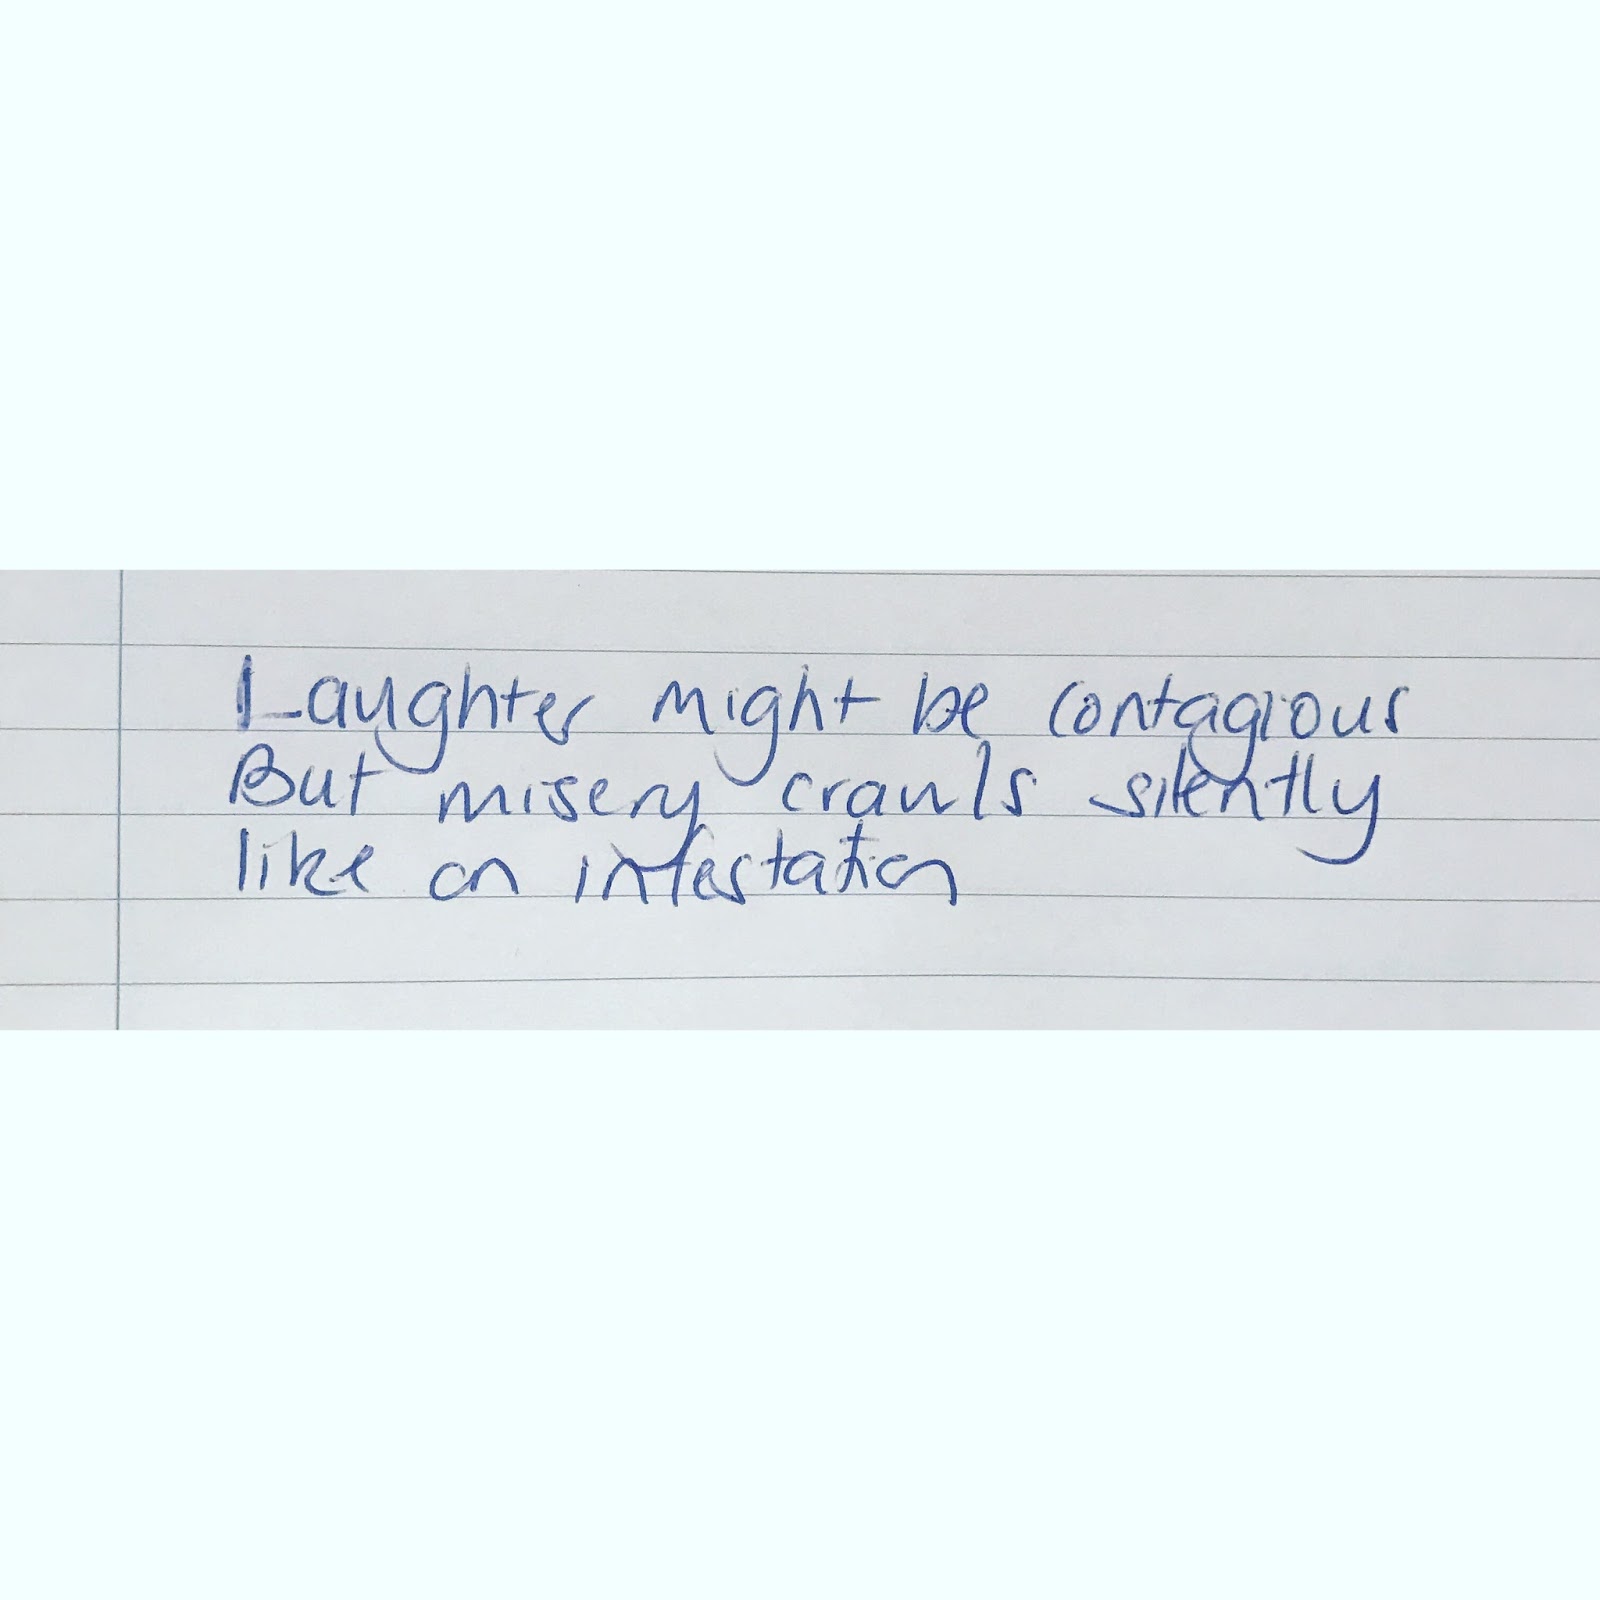 Laughter might be contagious
But misery crawls silently
like an infestation